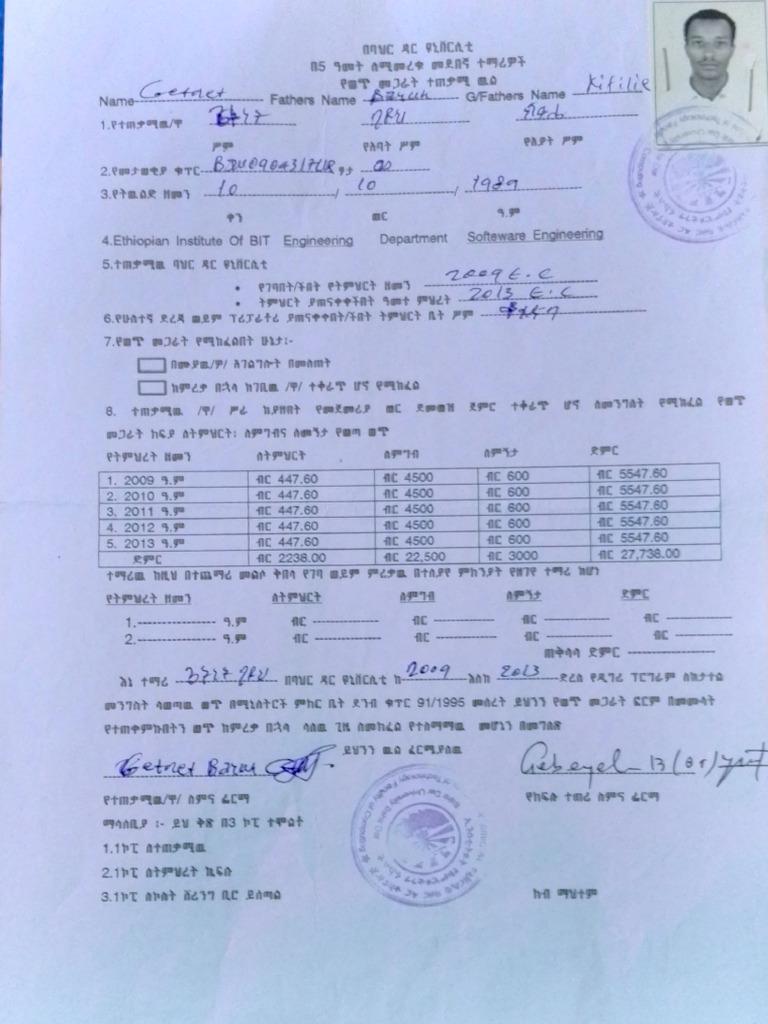 በባህር ዳር ዩኒቨርሲቲ
በ5 ዓመት ለሚመረቁ መደበኛ ተማሪዎች
የወጭ መጋራት ተጠቃሚ ዉል
Name Getnet Fathers Name G/Fathers Name Kifilie
1.የተጠቃሚዉ/ዋ
ሥም የአባት ሥም የአያት ሥም
2.የመታወቂያ ቁጥር ፆታ
3.የትዉልድ ዘመን 10 / 10 / 1989
ቀን ወር ዓ.ም
4.Ethiopian Institute Of BIT Engineering Department Softeware Engineering
5.ተጠቃሚዉ ባህር ዳር ዩኒቨርሲቲ
• የገባበት/ችበት የትምህርት ዘመን 2009 E.C
• ትምህርት ያጠናቀቀችበት ዓመተ ምህረት 2013 E.C
6.የሁለተኛ ደረጃ ወይም ፕሪፓራቶሪ ያጠናቀቀበት/ችበት ትምህርት ቤት ሥም
7.የወጭ መጋራት የሚከፈልበት ሁኔታ፡-
በሙያዉ/ዋ/ አገልግሎት በመስጠት
ከምረቃ በኋላ ከገቢዉ /ዋ/ ተቀራጭ ሆኖ የሚከፈል
8. ተጠቃሚዉ /ዋ/ ሥራ ከያዘበት የመጀመሪያ ወር ደመወዝ ጀምር ተቀራጭ ሆኖ ለመንግስት የሚከፈል የወጭ
መጋራት ክፍያ ለትምህርት፤ ለምግብና ለመኝታ የወጣ ወጭ
የትምህረት ዘመን ለትምህርት ለምግብ ለምኝታ ድምር
1. 2009 ዓ.ም ብር 447.60 ብር 4500 ብር 600 ብር 5547.60
2. 2010 ዓ.ም ብር 447.60 ብር 4500 ብር 600 ብር 5547.60
3. 2011 ዓ.ም ብር 447.60 ብር 4500 ብር 600 ብር 5547.60
4. 2012 ዓ.ም ብር 447.60 ብር 4500 ብር 600 ብር 5547.60
5. 2013 ዓ.ም ብር 447.60 ብር 4500 ብር 600 ብር 5547.60
ድምር ብር 2238.00 ብር 22,500 ብር 3000 ብር 27,738.00
ተማሪዉ ከዚህ በተጨማሪ መልሶ ቅበላ የገባ ወይም ምረቃዉ በተለያየ ምክንያት የዘገየ ተማሪ ከሆነ
የትምህረት ዘመን ለትምህርት ለምግብ ለምኝታ ድምር
1.---------------- ዓ.ም ብር -------------- ብር -------------- ብር -------------- ብር --------------
2.---------------- ዓ.ም ብር -------------- ብር -------------- ብር -------------- ብር --------------
ጠቅላላ ድምር ----------------
እኔ ተማሪ በባህር ዳር ዩኒቨርሲቲ ከ 2009 እስከ 2013 ድረስ የዲገሪ ፕርግራም ስከታተል
መንግስት ላወጣዉ ወጭ በሚኒስትሮች ምክር ቤት ደንብ ቁጥር 91/1995 መሰረት ይህንን የወጭ መጋራት ፍርም በመሙላት
የተጠቀምኩበትን ወጭ ከምረቃ በኋላ ባለዉ ጊዜ ለመክፈል የተስማማዉ መሆኔን በመግለጽ
ይህንን ዉል ፈርሚያለዉ
Getnet
የተጠቃሚዉ/ዋ/ ስምና ፊርማ የክፍሉ ተጠሪ ስምና ፊርማ
ማሳሰቢያ ፡- ይህ ቅጽ በ3 ኮፒ ተሞልቶ
1.1ኮፒ ለተጠቃሚዉ
2.1ኮፒ ለትምህረት ክፍሉ
3.1ኮፒ ለኮስት ሸሪንግ ቢሮ ይሰጣል ክብ ማህተም